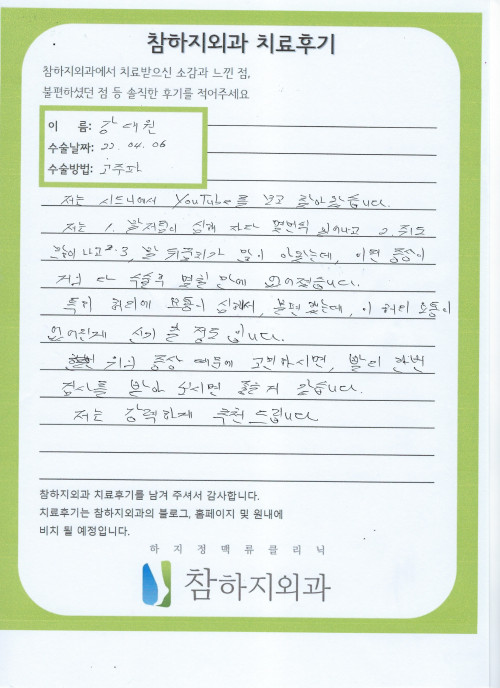 참하지외과 치료후기
참하지외과에서 치료받으신 소감과 느낀 점,
불편하셨던 점 등 솔직한 후기를 적어주세요
이 름: 강대원
수술날짜: 22. 04. 06
수술방법: 고주파
저는 시드니에서 YouTube를 보고 찾아왔습니다.
저는 1. 발저림이 심해 자다 몇번씩 일어나고 2. 쥐도
많이 나고 3, 발 뒤꿈치가 많이 아팠는데, 이런 증상이
거의 다 수술후 몇일 만에 없어졌습니다.
특히 허리에 요통이 심해서, 불편 했는데, 이 허리 요통이
없어진게 신기 할 정도 입니다.
위의 증상 때문에 고민하시면, 빨리 한번
검사를 받아 보시면 좋을거 같습니다.
저는 강력하게 추천 드립니다
참하지외과 치료후기를 남겨 주셔서 감사합니다.
치료후기는 참하지외과의 블로그, 홈페이지 및 원내에
비치 될 예정입니다.
하지정맥류클리닉
참하지외과